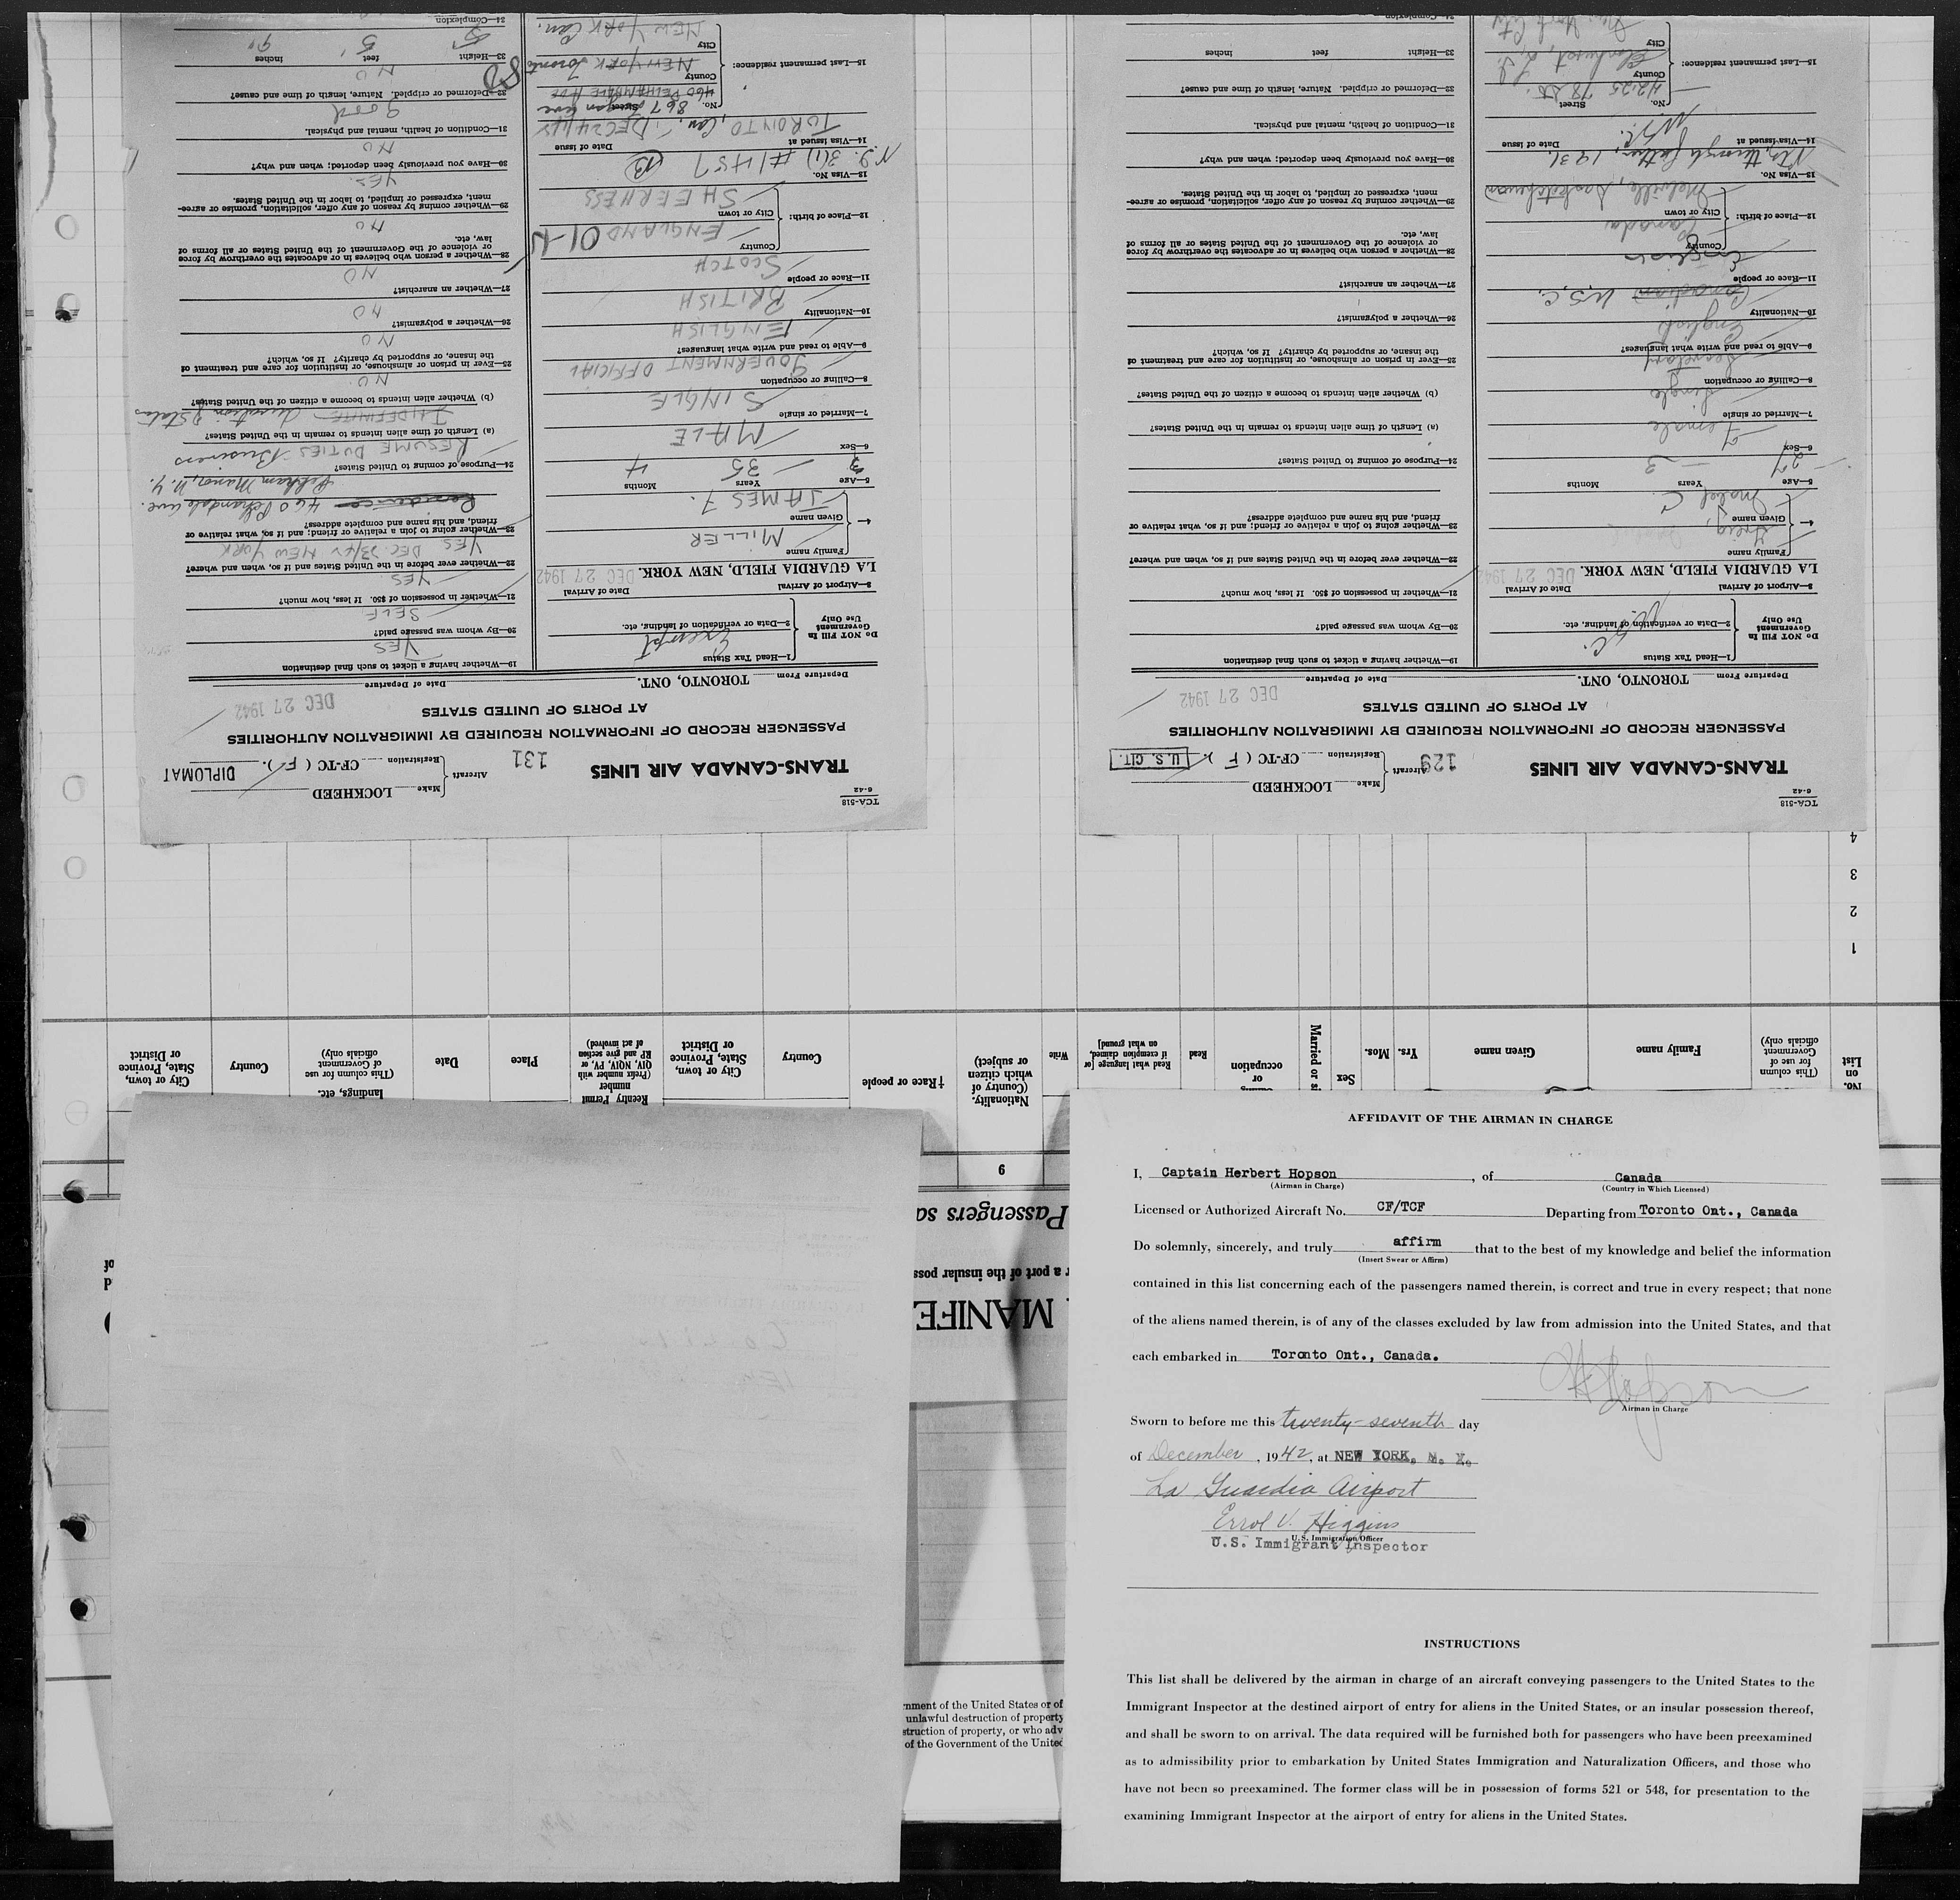 TCA-518
6-42
TRANS-CANADA AIR LINES
131
Aircraft
Make LOCKHEED
Registration CF-TC ( F ).
DIPLOMAT
PASSENGER RECORD OF INFORMATION REQUIRED BY IMMIGRATION AUTHORITIES
AT PORTS OF UNITED STATES
Departure From TORONTO, ONT. Date of Departure DEC 27 1942
DO NOT FILL IN
Government
Use Only
1—Head Tax Status Exempt
2—Data or verification of landing, etc.
3—Airport of Arrival Date of Arrival
LA GUARDIA FIELD, NEW YORK. DEC 27 1942
4— Family name MILLER
Given name JAMES F.
5—Age Years 35 Months 4
6—Sex MALE
7—Married or single SINGLE
8—Calling or occupation GOVERNMENT OFFICIAL
9—Able to read and write what languages? ENGLISH
10—Nationality BRITISH
11—Race or people SCOTCH
12—Place of birth: Country ENGLAND
City or town SHEERNESS
13—Visa No. 3(1) #1457
14—Visa Issued at Date of Issue
TORONTO, Can. DEC 24/42
15—Last permanent residence: No. Street 867 Logan Ave
460 PELHAMDALE AVE
County NEW YORK Toronto
City NEW YORK Can.
19—Whether having a ticket to such final destination YES
20—By whom was passage paid? SELF
21—Whether in possession of $50. If less, how much? YES
22—Whether ever before in the United States and if so, when and where?
YES DEC. 23/42 NEW YORK
23—Whether going to join a relative or friend; and if so, what relative or
friend, and his name and complete address?
Residence 460 Pelhamdale Ave.
Pelham Manor, N.Y.
24—Purpose of coming to United States?
RESUME DUTIES Business
(a) Length of time alien intends to remain in the United States?
INDEFINITE duration of Status
(b) Whether alien intends to become a citizen of the United States?
NO
25—Ever in prison or almshouse, or institution for care and treatment of
the insane, or supported by charity? If so, which?
NO
26—Whether a polygamist?
NO
27—Whether an anarchist?
NO
28—Whether a person who believes in or advocates the overthrow by force
or violence of the Government of the United States or all forms of
law, etc.
NO
29—Whether coming by reason of any offer, solicitation, promise or agree-
ment, expressed or implied, to labor in the United States.
YES
30—Have you previously been deported; when and why?
NO
31—Condition of health, mental and physical.
good
32—Deformed or crippled. Nature, length of time and cause?
NO
33—Height 5' feet 9" inches
34—Complexion
TCA-518
6-42
TRANS-CANADA AIR LINES
129
Aircraft
Make LOCKHEED
Registration CF-TC ( F )
U. S. CIT.
PASSENGER RECORD OF INFORMATION REQUIRED BY IMMIGRATION AUTHORITIES
AT PORTS OF UNITED STATES
Departure From TORONTO, ONT. Date of Departure DEC 27 1942
DO NOT FILL IN
Government
Use Only
1—Head Tax Status
2—Data or verification of landing, etc.
3—Airport of Arrival Date of Arrival
LA GUARDIA FIELD, NEW YORK. DEC 27 1942
4— Family name
Given name Mabel C.
5—Age Years 27 Months 3
6—Sex Female
7—Married or single Single
8—Calling or occupation Secretary
9—Able to read and write what languages? English
10—Nationality Canadian U.S.C.
11—Race or people English
12—Place of birth: Country Canada
City or town Melville, Saskatchewan
13—Visa No. Ntz. through father, 1931
14—Visa Issued at N.Y.C. Date of Issue
15—Last permanent residence: No. Street 42-25 78 St.
County Elmhurst, L.I.
City New York City
19—Whether having a ticket to such final destination
20—By whom was passage paid?
21—Whether in possession of $50. If less, how much?
22—Whether ever before in the United States and if so, when and where?
23—Whether going to join a relative or friend; and if so, what relative or
friend, and his name and complete address?
24—Purpose of coming to United States?
(a) Length of time alien intends to remain in the United States?
(b) Whether alien intends to become a citizen of the United States?
25—Ever in prison or almshouse, or institution for care and treatment of
the insane, or supported by charity? If so, which?
26—Whether a polygamist?
27—Whether an anarchist?
28—Whether a person who believes in or advocates the overthrow by force
or violence of the Government of the United States or all forms of
law, etc.
29—Whether coming by reason of any offer, solicitation, promise or agree-
ment, expressed or implied, to labor in the United States.
30—Have you previously been deported; when and why?
31—Condition of health, mental and physical.
32—Deformed or crippled. Nature, length of time and cause?
33—Height feet inches
34—Complexion
MANIFE
r a port of the insular poss
Passengers sa
6
No. on List
(This column for use of Government officials only)
Family name
Given name
Yrs.
Mos.
Sex
Married or si
or occupation
Read
Read what language [or if exemption claimed, on what ground]
Write
Nationality. (Country of which citizen or subject)
†Race or people
Country
City or town, State, Province or District
Reentry Permit number (Prefix number with QIV, NQIV, PV, or RP and give section of act involved)
Place
Date
landings, etc. (This column for use of Government officials only)
Country
City or town, State, Province or District
1
2
3
4
rnment of the United States or of
unlawful destruction of property
struction of property, or who adv
of the Government of the United
AFFIDAVIT OF THE AIRMAN IN CHARGE
I, Captain Herbert Hopson, of Canada
(Airman in Charge) (Country in Which Licensed)
Licensed or Authorized Aircraft No. CF/TCF Departing from Toronto Ont., Canada
Do solemnly, sincerely, and truly affirm that to the best of my knowledge and belief the information
(Insert Swear or Affirm)
contained in this list concerning each of the passengers named therein, is correct and true in every respect; that none
of the aliens named therein, is of any of the classes excluded by law from admission into the United States, and that
each embarked in Toronto Ont., Canada.
H Hopson
Airman in Charge
Sworn to before me this twenty-seventh day
of December, 1942, at NEW YORK, N. Y.
La Guardia Airport
Errol V. Higgins
U.S. Immigration Officer
U.S. Immigrant Inspector
INSTRUCTIONS
This list shall be delivered by the airman in charge of an aircraft conveying passengers to the United States to the
Immigrant Inspector at the destined airport of entry for aliens in the United States, or an insular possession thereof,
and shall be sworn to on arrival. The data required will be furnished both for passengers who have been preexamined
as to admissibility prior to embarkation by United States Immigration and Naturalization Officers, and those who
have not been so preexamined. The former class will be in possession of forms 521 or 548, for presentation to the
examining Immigrant Inspector at the airport of entry for aliens in the United States.